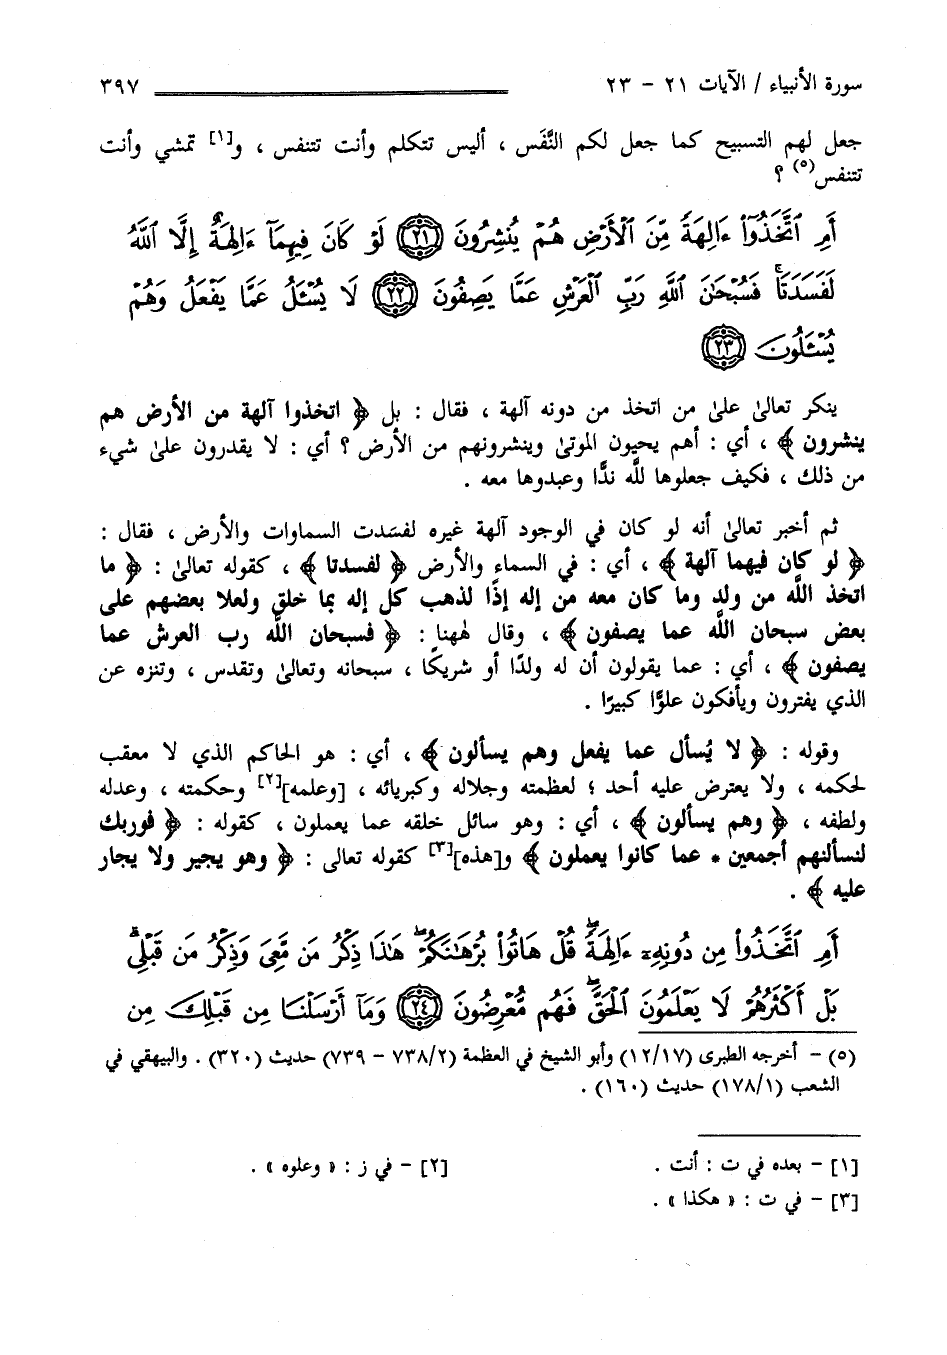 سورة الأنبياء / الآيات ٢١ - ٢٣ ٣٩٧
جعل لهم التسبيح كما جعل لكم النَّفَس ، أليس تتكلم وأنت تتنفس ، و[١] تمشي وأنت
تتنفس(٥) ؟
أَمِ ٱتَّخَذُوٓا۟ ءَالِهَةً مِّنَ ٱلْأَرْضِ هُمْ يُنشِرُونَ ٢١ لَوْ كَانَ فِيهِمَآ ءَالِهَةٌ إِلَّا ٱللَّهُ
لَفَسَدَتَا ۚ فَسُبْحَٰنَ ٱللَّهِ رَبِّ ٱلْعَرْشِ عَمَّا يَصِفُونَ ٢٢ لَا يُسْـَٔلُ عَمَّا يَفْعَلُ وَهُمْ
يُسْـَٔلُونَ ٢٣
ينكر تعالىٰ علىٰ من اتخذ من دونه آلهة ، فقال : بل ﴿ اتخذوا آلهة من الأرض هم
ينشرون ﴾ ، أي : أهم يحيون الموتىٰ وينشرونهم من الأرض ؟ أي : لا يقدرون علىٰ شيء
من ذلك ، فكيف جعلوها للَّه ندًّا وعبدوها معه .
ثم أخبر تعالىٰ أنه لو كان في الوجود آلهة غيره لفسدت السماوات والأرض ، فقال :
﴿ لو كان فيهما آلهة ﴾ ، أي : في السماء والأرض ﴿ لفسدتا ﴾ ، كقوله تعالىٰ : ﴿ ما
اتخذ اللَّه من ولد وما كان معه من إله إذًا لذهب كل إله بما خلق ولعلا بعضهم على
بعض سبحان اللَّه عما يصفون ﴾ ، وقال لههنا : ﴿ فسبحان اللَّه رب العرش عما
يصفون ﴾ ، أي : عما يقولون أن له ولدًا أو شريكًا ، سبحانه وتعالىٰ وتقدس ، وتنزه عن
الذي يفترون ويأفكون علوًّا كبيرًا .
وقوله : ﴿ لا يُسأل عما يفعل وهم يسألون ﴾ ، أي : هو الحاكم الذي لا معقب
لحكمه ، ولا يعترض عليه أحد ؛ لعظمته وجلاله وكبريائه ، [وعلمه][٢] وحكمته ، وعدله
ولطفه ، ﴿ وهم يسألون ﴾ ، أي : وهو سائل خلقه عما يعملون ، كقوله : ﴿ فوربك
لنسألنهم أجمعين * عما كانوا يعملون ﴾ و[هذه][٣] كقوله تعالى : ﴿ وهو يجير ولا يجار
عليه ﴾ .
أَمِ ٱتَّخَذُوا۟ مِن دُونِهِۦٓ ءَالِهَةً ۖ قُلْ هَاتُوا۟ بُرْهَٰنَكُمْ ۖ هَٰذَا ذِكْرُ مَن مَّعِىَ وَذِكْرُ مَن قَبْلِى ۗ
بَلْ أَكْثَرُهُمْ لَا يَعْلَمُونَ ٱلْحَقَّ ۖ فَهُم مُّعْرِضُونَ ٢٤ وَمَآ أَرْسَلْنَا مِن قَبْلِكَ مِن
(٥) - أخرجه الطبرى (١٢/١٧) وأبو الشيخ في العظمة (٧٣٨/٢ - ٧٣٩) حديث (٣٢٠) . والبيهقي في
الشعب (١٧٨/١) حديث (١٦٠) .
[١] - بعده في ت : أنت . [٢] - في ز : « وعلوه » .
[٣] - في ت : « هكذا » .